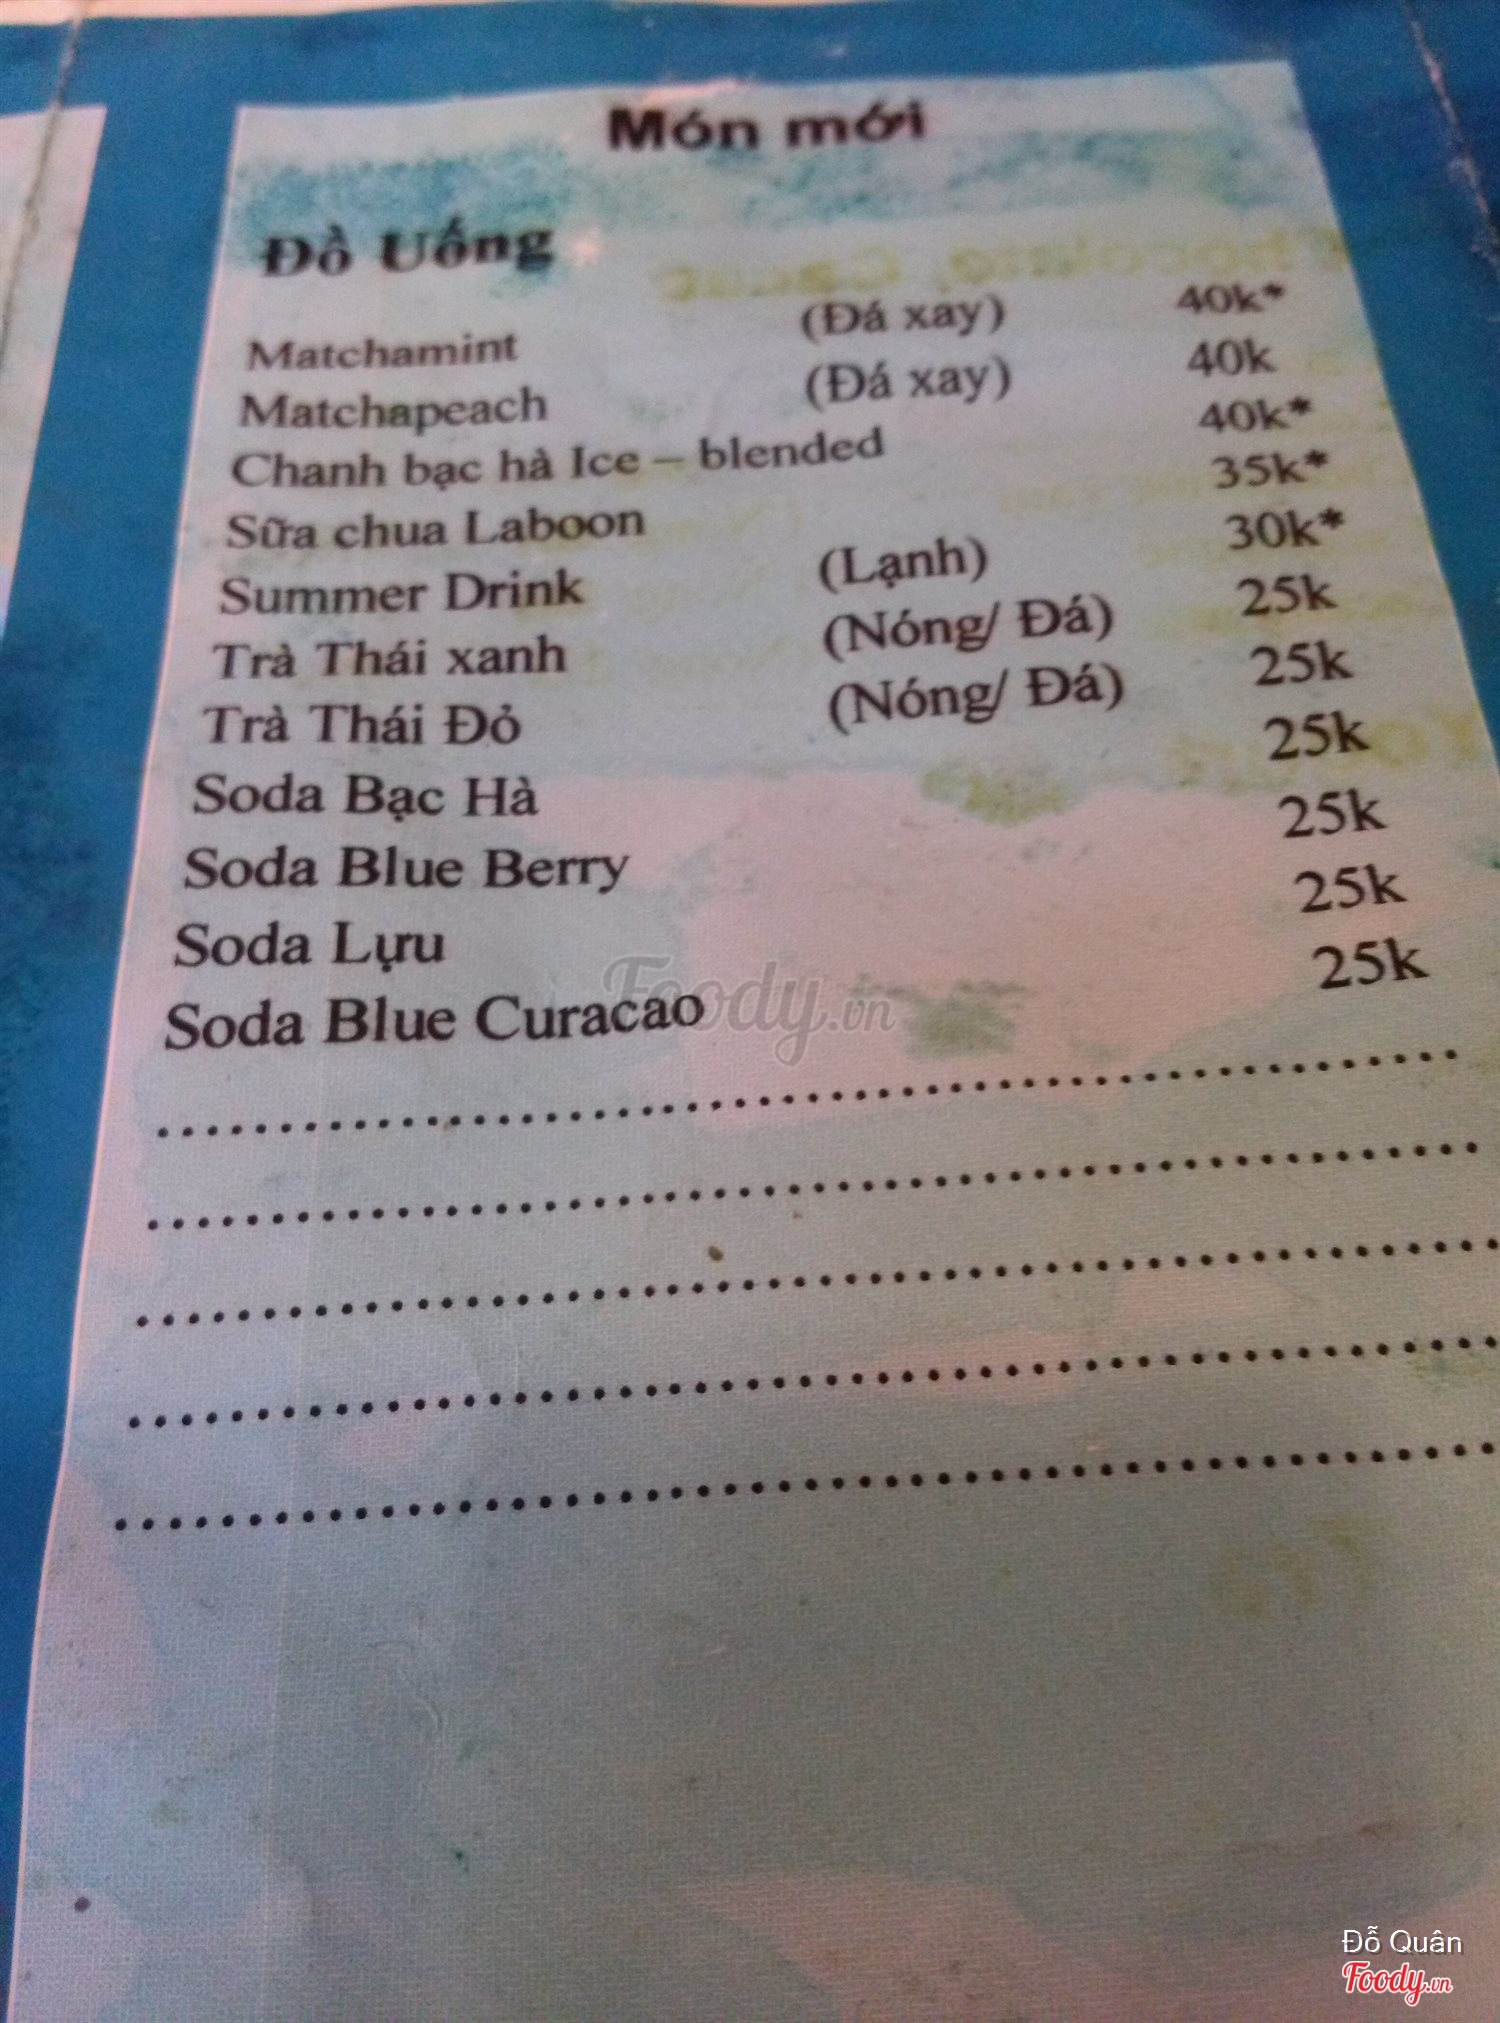 Món mới
Đồ Uống
Matchamint (Đá xay) 40k*
Matchapeach (Đá xay) 40k
Chanh bạc hà Ice – blended 40k*
Sữa chua Laboon 35k*
Summer Drink (Lạnh) 30k*
Trà Thái xanh (Nóng/ Đá) 25k
Trà Thái Đỏ (Nóng/ Đá) 25k
Soda Bạc Hà 25k
Soda Blue Berry 25k
Soda Lựu 25k
Soda Blue Curacao 25k
Foody.vn
Đỗ Quân
Foody.vn